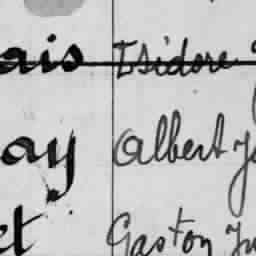 ais Isidore
ay Albert
et Gaston